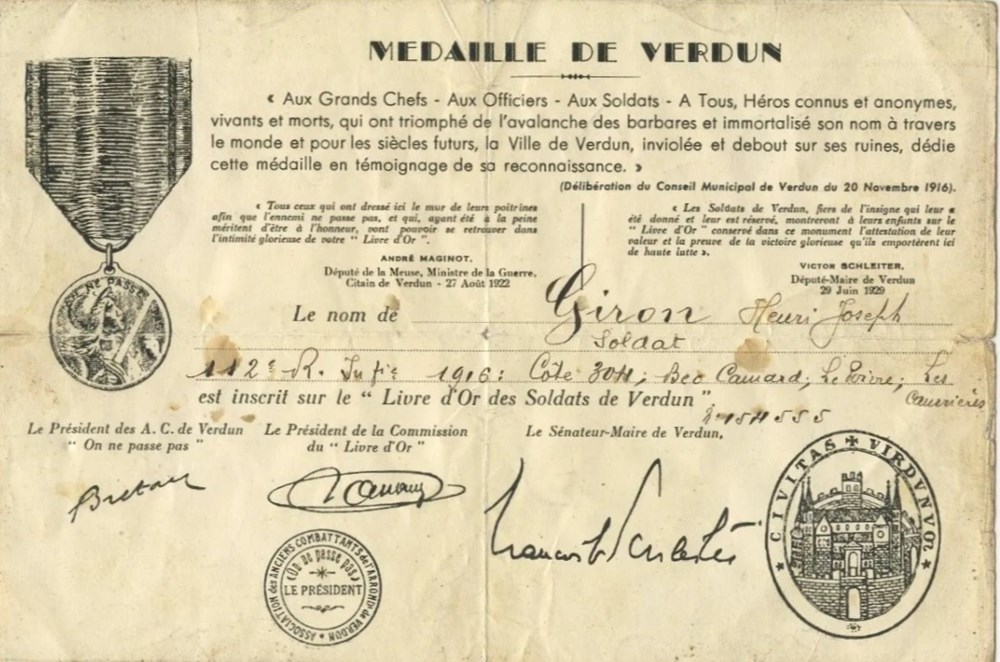 MEDAILLE DE VERDUN
« Aux Grands Chefs - Aux Officiers - Aux Soldats - A Tous, Héros connus et anonymes,
vivants et morts, qui ont triomphé de l'avalanche des barbares et immortalisé son nom à travers
le monde et pour les siècles futurs, la Ville de Verdun, inviolée et debout sur ses ruines, dédie
cette médaille en témoignage de sa reconnaissance. »
(Délibération du Conseil Municipal de Verdun du 20 Novembre 1916).
« Tous ceux qui ont dressé ici le mur de leurs poitrines
afin que l'ennemi ne passe pas, et qui, ayant été à la peine
méritent d'être à l'honneur, vont pouvoir se retrouver dans
l'intimité glorieuse de votre " Livre d'Or ".
ANDRÉ MAGINOT.
Député de la Meuse, Ministre de la Guerre,
Citain de Verdun - 27 Août 1922
« Les Soldats de Verdun, fiers de l'insigne qui leur a
été donné et leur est réservé, montreront à leurs enfants sur le
" Livre d'Or " conservé dans ce monument l'attestation de leur
valeur et la preuve de la victoire glorieuse qu'ils emportèrent ici
de haute lutte ».
VICTOR SCHLEITER,
Député-Maire de Verdun
29 Juin 1929
ON NE PASSE PAS
Le nom de Giron Henri Joseph
Soldat
112e R. Infie 1916: Côte 304; Bec Camard; Le Poivre; Les
est inscrit sur le " Livre d'Or des Soldats de Verdun "
154555
Le Président des A. C. de Verdun
" On ne passe pas "
Le Président de la Commission
du " Livre d'Or "
Le Sénateur-Maire de Verdun,
ASSOCIATION des ANCIENS COMBATTANTS de l'ARROND. de VERDUN
"On ne passe pas"
LE PRÉSIDENT
CIVITAS VIRDVNVM